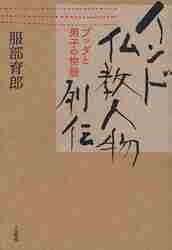 インド
仏教人物
列伝
ブッダと
弟子の物語
服部育郎
大法輪閣